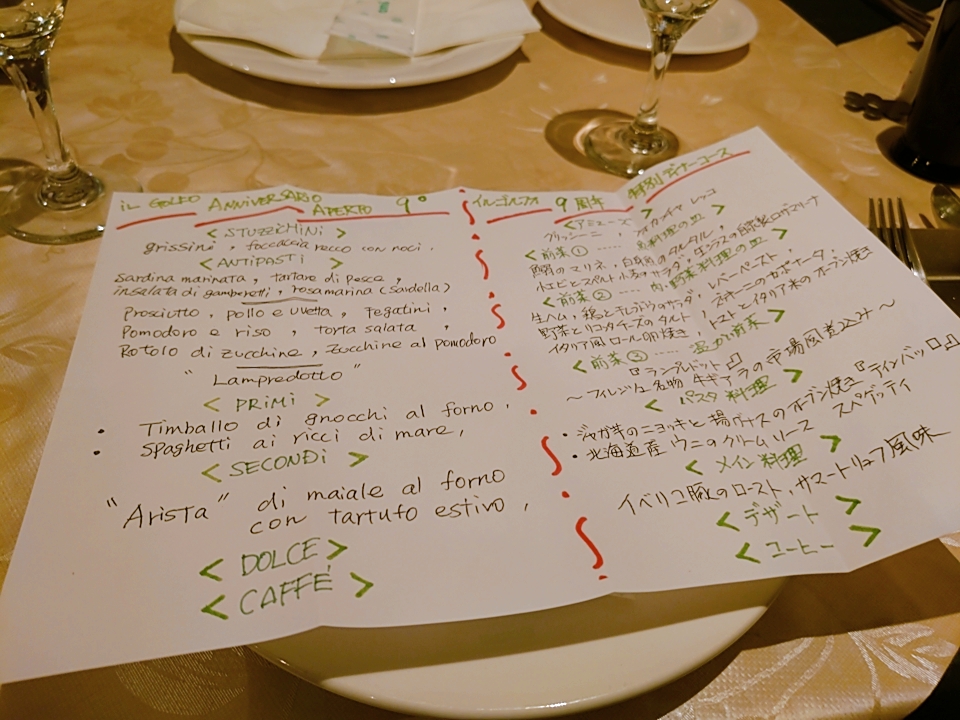 IL GOLFO ANNIVERSARIO APERTO 9°
< STUZZICHINI >
grissini, foccaccia recco con noci.
< ANTIPASTI >
Sardina marinata, tartare di pesce,
insalata di gamberetti, rosamarina (sardella)
Prosciutto, pollo e uvetta, Fegatini,
Pomodoro e riso, torta salata,
Rotolo di zucchine, Zucchine al pomodoro
"Lampredotto"
< PRIMI >
• Timballo di gnocchi al forno,
• Spaghetti ai ricci di mare,
< SECONDI >
"Arista" di maiale al forno
con tartufo estivo,
< DOLCE >
< CAFFÉ >
イルゴルフォ 9周年 特別ディナーコース
<アミューズ>
グリッシーニ フォカッチャ レッコ
<前菜① ‥‥‥ 魚料理の皿>
鰯のマリネ, 白身魚のタルタル,
小エビとスペルト小麦のサラダ, 生シラスの自家製ロザマリーナ
<前菜② ‥‥‥ 肉・野菜料理の皿>
生ハム, 鶏と干しブドウのサラダ, レバーペースト
野菜とリコッタチーズのタルト, ズッキーニのカポナータ,
イタリア風ロール卵焼き, トマトとイタリア米のオーブン焼き
<前菜③ ‥‥‥ 温かい前菜>
『ランプレドット』
〜フィレンツェ名物 牛ギアラの市場風煮込み〜
<パスタ料理>
• ジャガ芋のニョッキと揚げナスのオーブン焼き『ティンバッロ』
• 北海道産ウニのクリームソース スパゲッティ
<メイン料理>
イベリコ豚のロースト, サマートリュフ風味
<デザート>
<コーヒー>